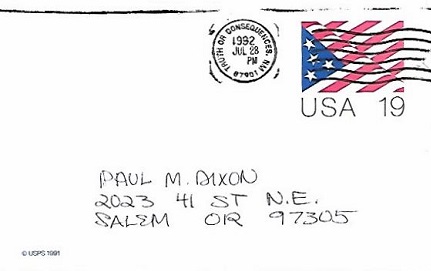 TRUTH OR CONSEQUENCES, NM
1992
JUL 28
PM
87901
USA 19
PAUL M. DIXON
2023 41 ST N.E.
SALEM OR 97305
© USPS 1991